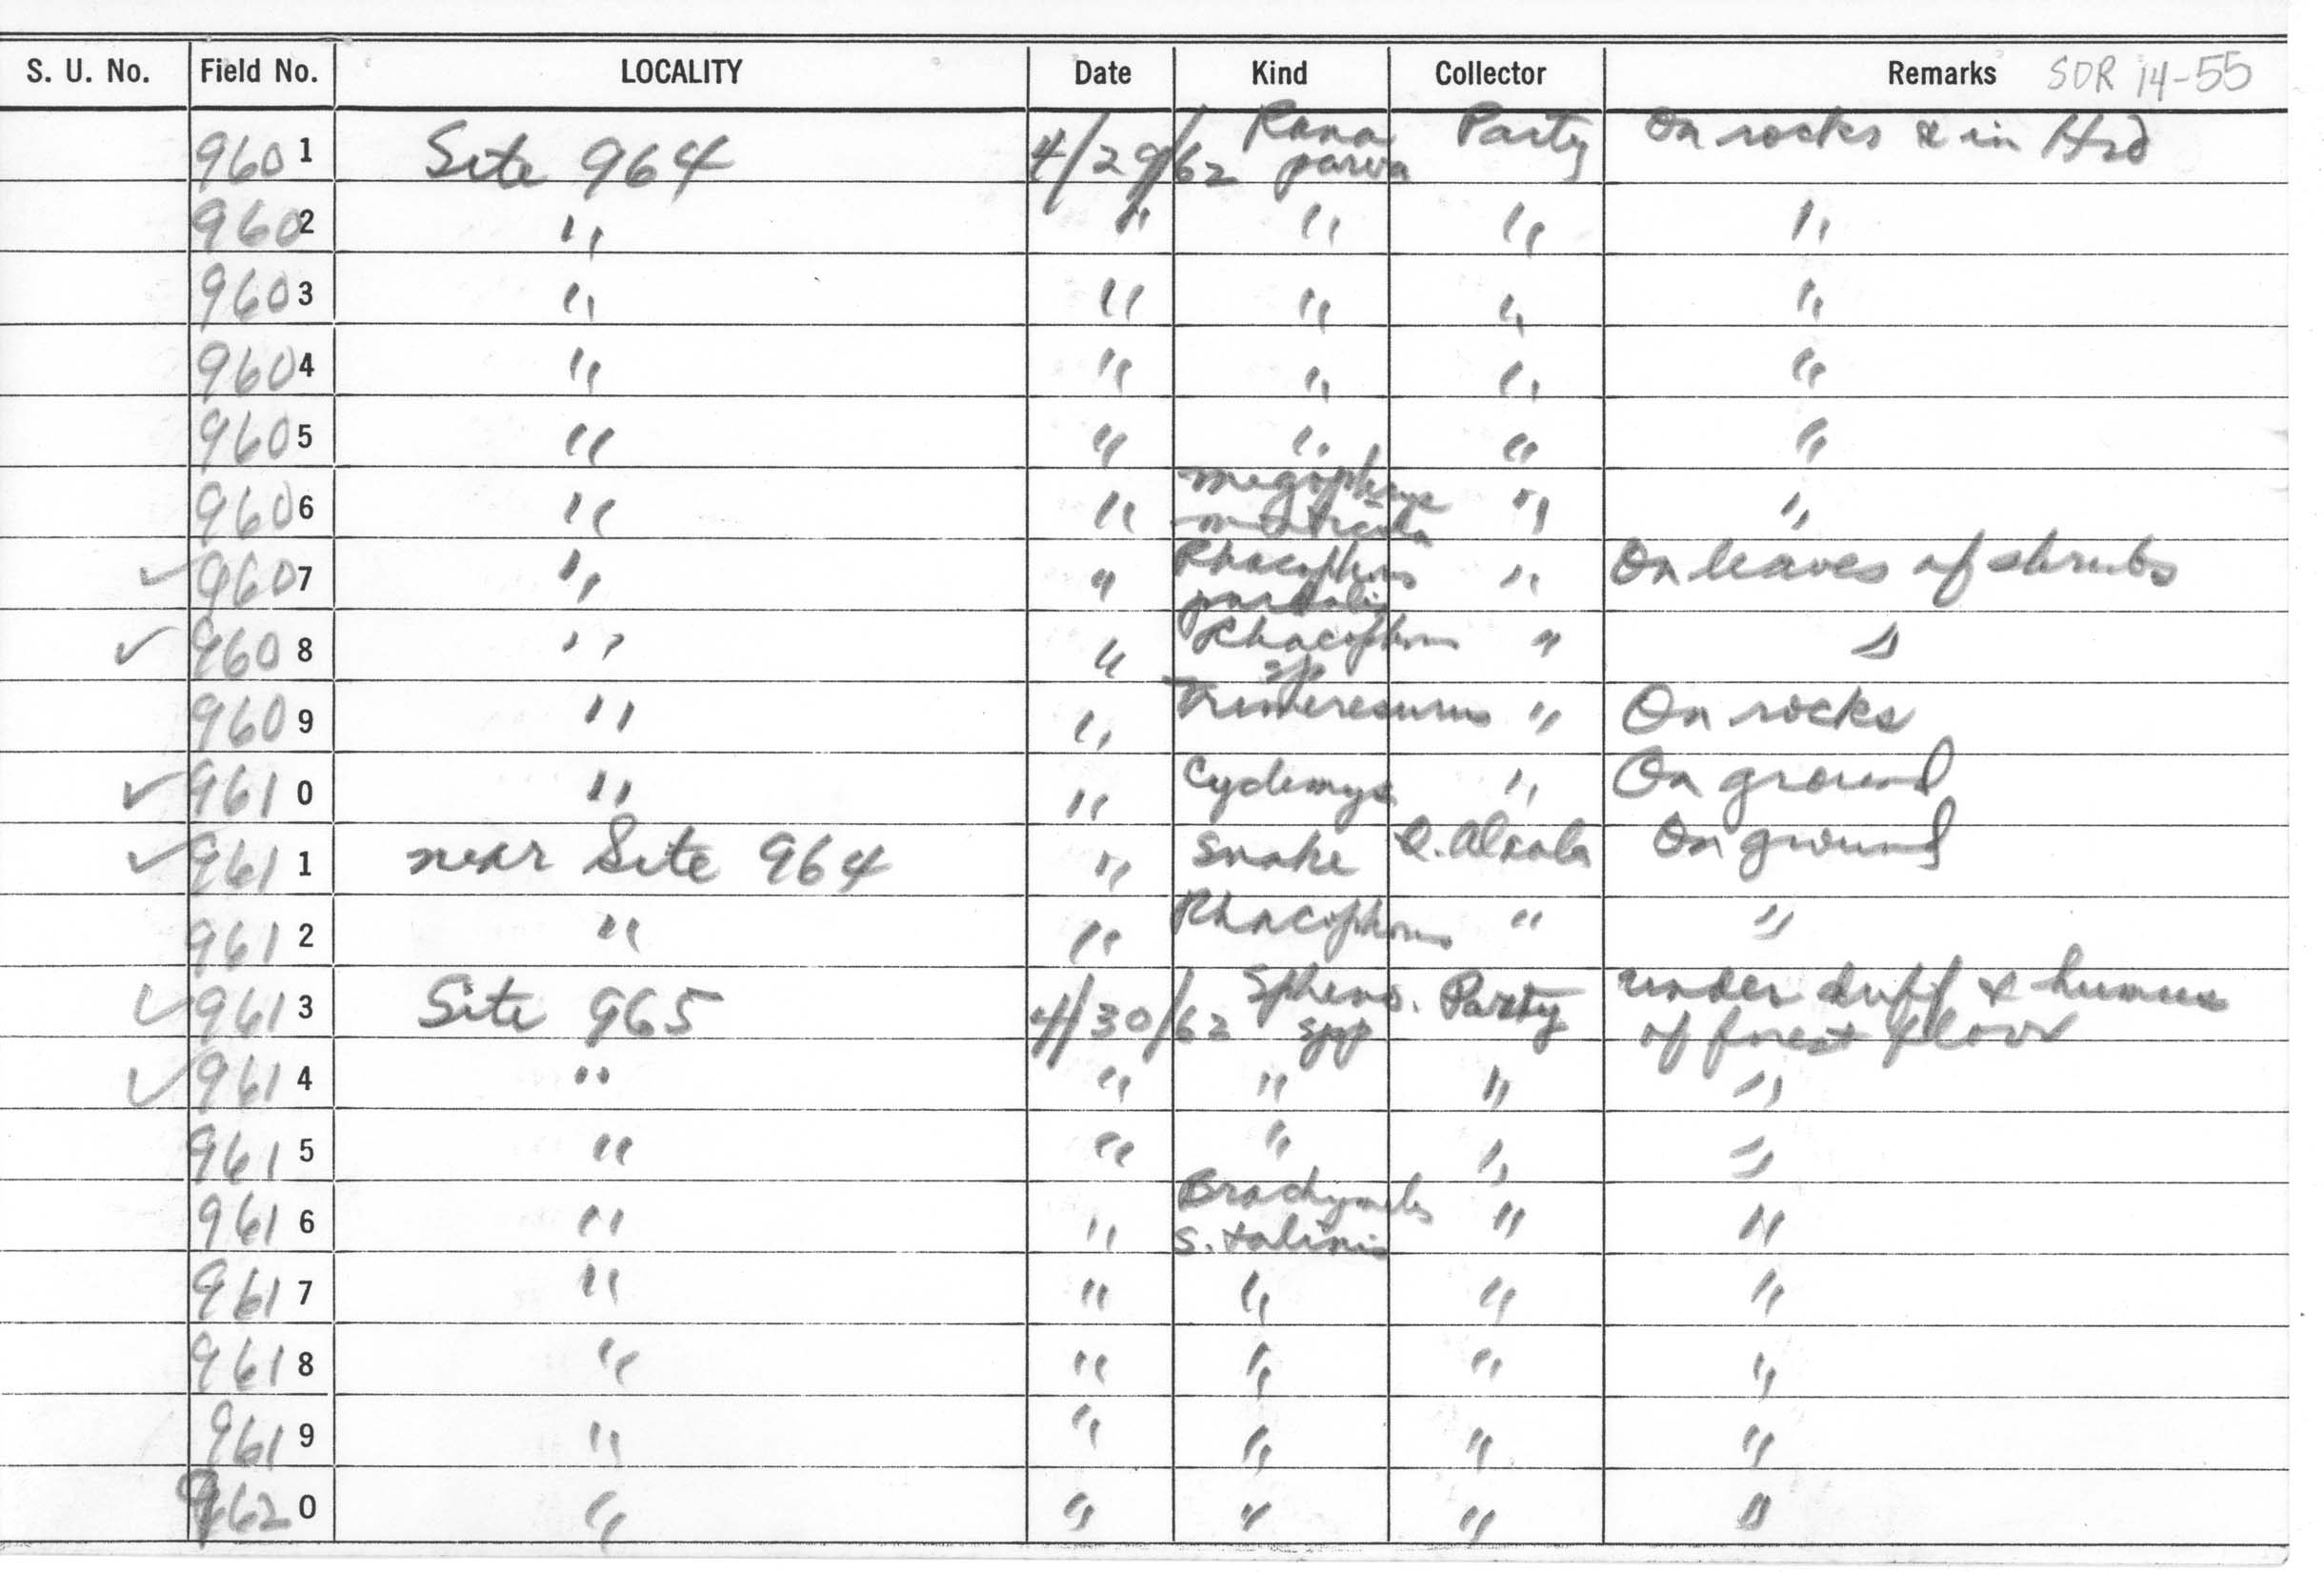 S. U. No. Field No. LOCALITY Date Kind Collector Remarks SDR 14-55
9601 Site 964 4/29/62 Rana parva Party On rocks & in H2O
9602 " " " " "
9603 " " " " "
9604 " " " " "
9605 " " " " "
9606 " " Megophrys monticola " "
✓ 9607 " " Rhacophorus pardalis " On leaves of shrubs
✓ 9608 " " Rhacophorus sp " "
9609 " " Trimeresurus " On rocks
✓ 9610 " " Cyclemys " On ground
✓ 9611 near Site 964 " Snake Q. Alcala On ground
9612 " " Rhacophorus " "
✓ 9613 Site 965 4/30/62 Spheno. spp Party under duff & humus of forest floor
✓ 9614 " " " " "
9615 " " " " "
9616 " " Brachymeles s. talinis " "
9617 " " " " "
9618 " " " " "
9619 " " " " "
9620 " " " " "